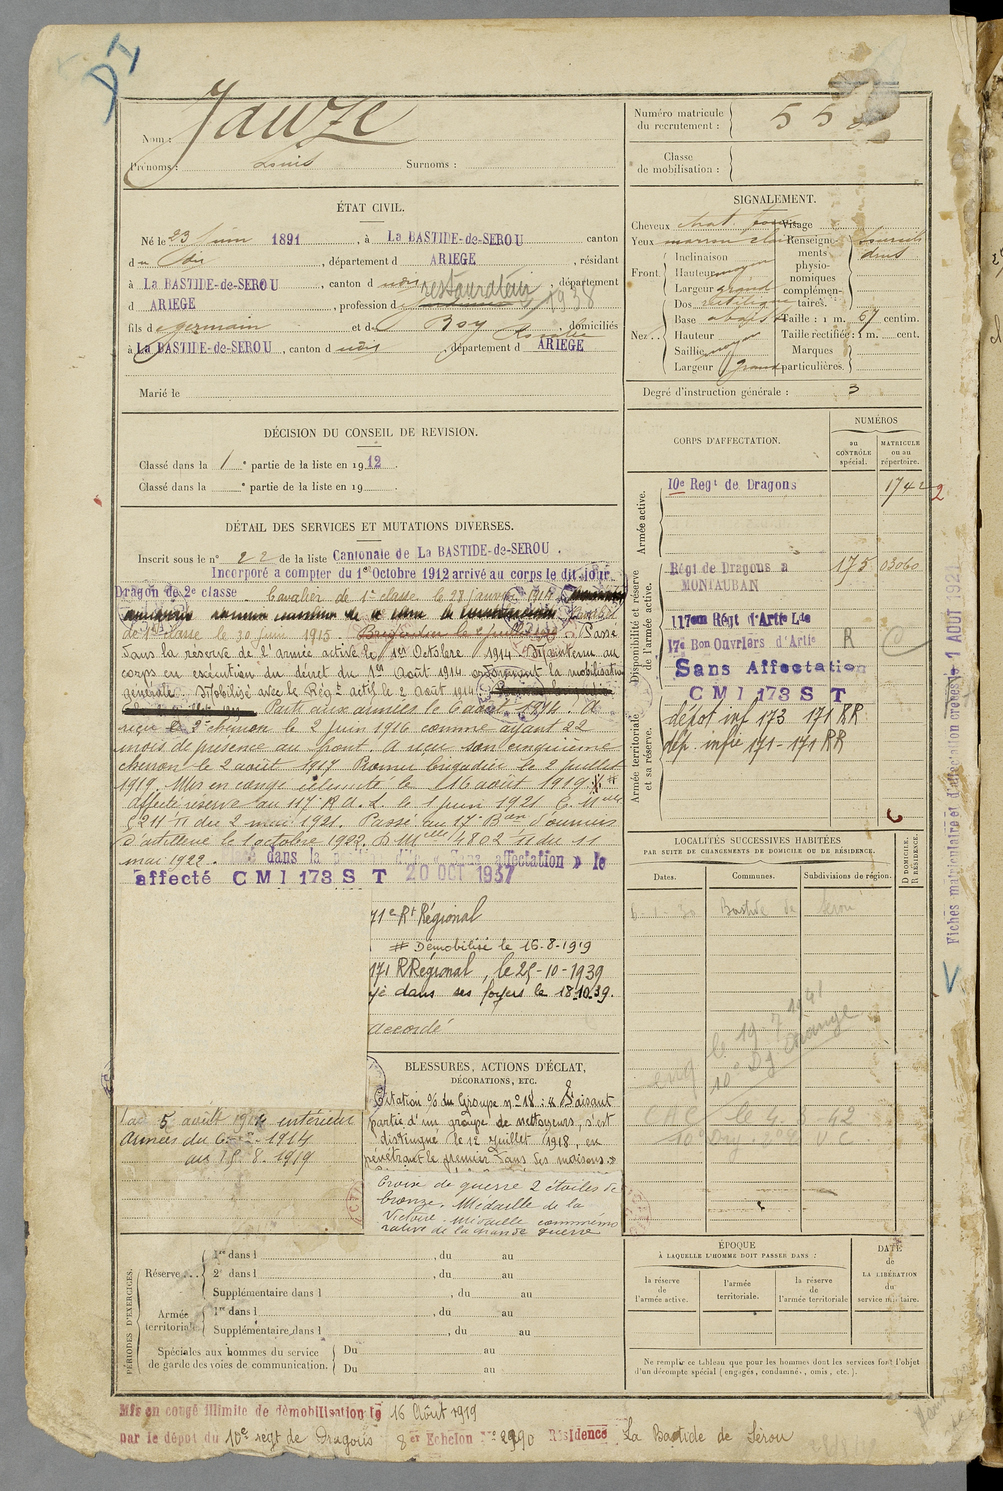 Nom : Jauze
Prénoms : Louis Surnoms :
Numéro matricule
du recrutement :
Classe
de mobilisation :
ÉTAT CIVIL.
Né le 23 juin 1891, à La BASTIDE-de-SEROU canton
du dit, département d ARIEGE, résidant
à La BASTIDE-de-SEROU, canton d udit, département
d ARIEGE, profession de restaurateur 1938
fils de germain et de Roy Rosalie, domiciliés
à La BASTIDE-de-SEROU, canton d udit, département d ARIEGE
Marié le
SIGNALEMENT.
Cheveux chat Visage
Yeux marron clair Renseigne-
ments
physio-
nomiques
complémen-
taires.
Front Inclinaison
Hauteur moyen
Largeur grand
Nez Dos rectiligne
Base
Hauteur
Saillie moyen
Largeur grand
Taille : 1 m. 67 centim.
Taille rectifiée : 1 m. cent.
Marques
particulières.
Degré d'instruction générale : 3
DÉCISION DU CONSEIL DE REVISION.
Classé dans la 1e partie de la liste en 1912.
Classé dans la e partie de la liste en 19
DÉTAIL DES SERVICES ET MUTATIONS DIVERSES.
Inscrit sous le n° 22 de la liste Cantonale de La BASTIDE-de-SEROU.
Incorporé a compter du 1er Octobre 1912 arrivé au corps le dit jour
Dragon de 2e classe. Cavalier de 1e classe le 28 janvier 1914
de 1re classe le 30 juin 1915 Brigadier le Passé
dans la réserve de l'armée active le 1er Octobre 1914 Maintenu au
corps en exécution du décret du 1er août 1914 ordonnant la mobilisation
générale. Mobilisé avec le Régt actif le 2 août 1914
Parti aux armées le 6 août 1914. A
reçu le 3e chevron le 2 juin 1916 comme ayant 22
mois de présence au front. A reçu son cinquième
chevron le 2 août 1917 Promu brigadier le 2 juillet
1919. Mis en congé illimité le 16 août 1919
affecté réserve au 117e R.A.L. le 1 juin 1921
du 2 mai 1921. Passé au 17e Bon d'ouvriers
d'artillerie le 1 octobre 1922, D.Mlle 4802 du 11
mai 1922. dans la affectation » le
affecté CMI 173 S T 20 OCT 1937
71e Rt Régional
# Démobilisé le 16-8-1919
171 R Régional, le 25-10-1939
dans ses foyers le 18.10.39.
accordé
5 août 1914 intérieur
armées du 1914
au 15.8.1919
BLESSURES, ACTIONS D'ÉCLAT,
DÉCORATIONS, ETC.
Citation % du Groupe n° 18 : « Faisant
partie d'un groupe de nettoyeurs, s'est
distingué le 12 juillet 1918, en
pénétrant le premier dans les maisons »
Croix de guerre 2 étoiles de
bronze. Médaille de la
Victoire. Médaille commémo
rative de la grande guerre
CORPS D'AFFECTATION.
NUMÉROS
au
CONTRÔLE
spécial.
MATRICULE
ou au
répertoire.
Armée active.
10e Regt de Dragons 1742
Disponibilité et réserve
de l'armée active.
Régt de Dragons a
MONTAUBAN 175 03060
117em Régt d'Artie Lde
17e Bon Ouvriers d'Artie R C
Sans Affectation
CMI 173 S T
Armée territoriale
et sa réserve.
dépôt inf 173 171 RR
dép. infie 171 - 171 RR
LOCALITÉS SUCCESSIVES HABITÉES
PAR SUITE DE CHANGEMENTS DE DOMICILE OU DE RÉSIDENCE.
Dates. Communes. Subdivisions de région.
D DOMICILE.
R RÉSIDENCE.
6-1-30 Bastide de Serou
le 19 7 1941
CAC le 4 5 42
Fiches matriculaire et d'affectation créées le 1 AOUT 1921
PÉRIODES D'EXERCICES.
Réserve 1re dans l , du au
2e dans l , du au
Supplémentaire dans l , du au
Armée
territoriale 1re dans l , du au
Supplémentaire dans l , du au
Spéciales aux hommes du service
de garde des voies de communication.
Du au
Du au
ÉPOQUE
À LAQUELLE L'HOMME DOIT PASSER DANS :
la réserve
de
l'armée active.
l'armée
territoriale.
la réserve
de
l'armée territoriale
DATE
de
LA LIBÉRATION
du
service militaire.
Ne remplir ce tableau que pour les hommes dont les services font l'objet
d'un décompte spécial (engagés, condamnés, omis, etc.).
Mis en congé illimité de démobilisation le 16 Août 1919
par le dépôt du 10e regt de Dragons 8er Echelon N° Résidence La Bastide de Sérou